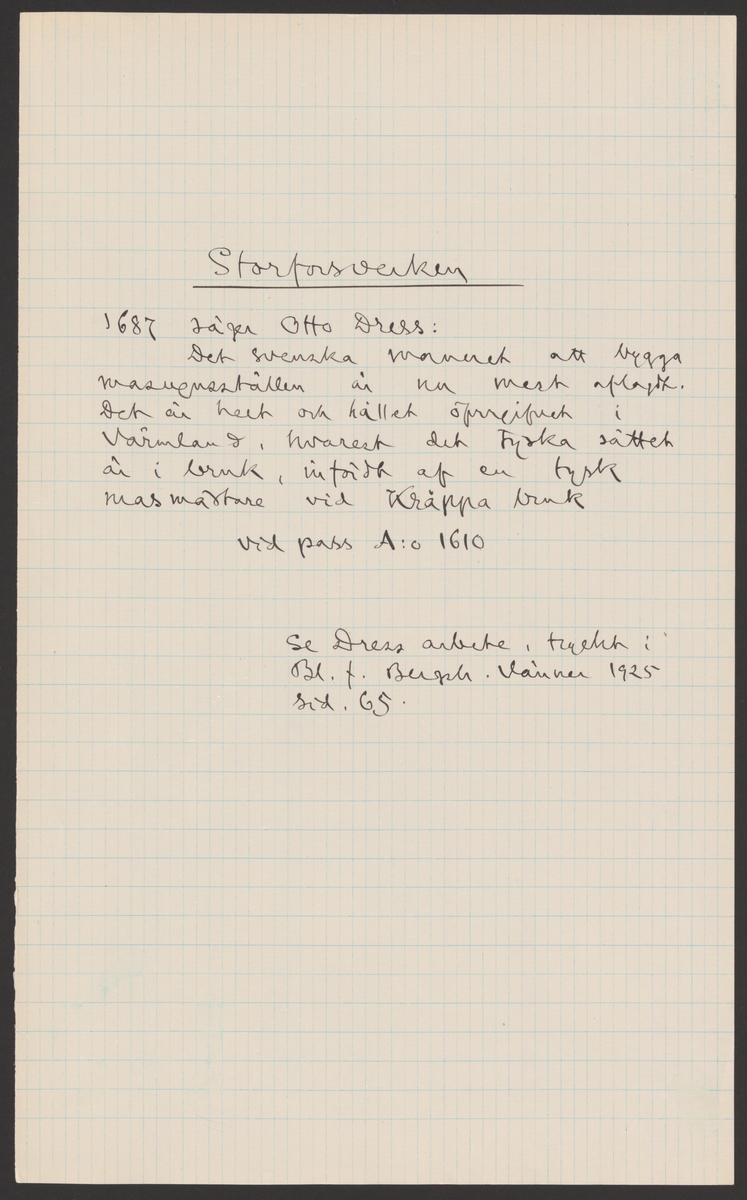 Storforsverken
1687 säger Otto Dress:
Det svenska maneret att bygga
masugnsställen är nu mest aflagdt.
Det är helt och hållet öfvergifvet i
Värmland, hvarest det Tyska sättet
är i bruk, infördt af en tysk
masmästare vid Kräppa bruk
vid pass A:o 1610
Se Dress arbete, tryckt i
Bl. f. Bergsh. Vänner 1925
sid. 65.